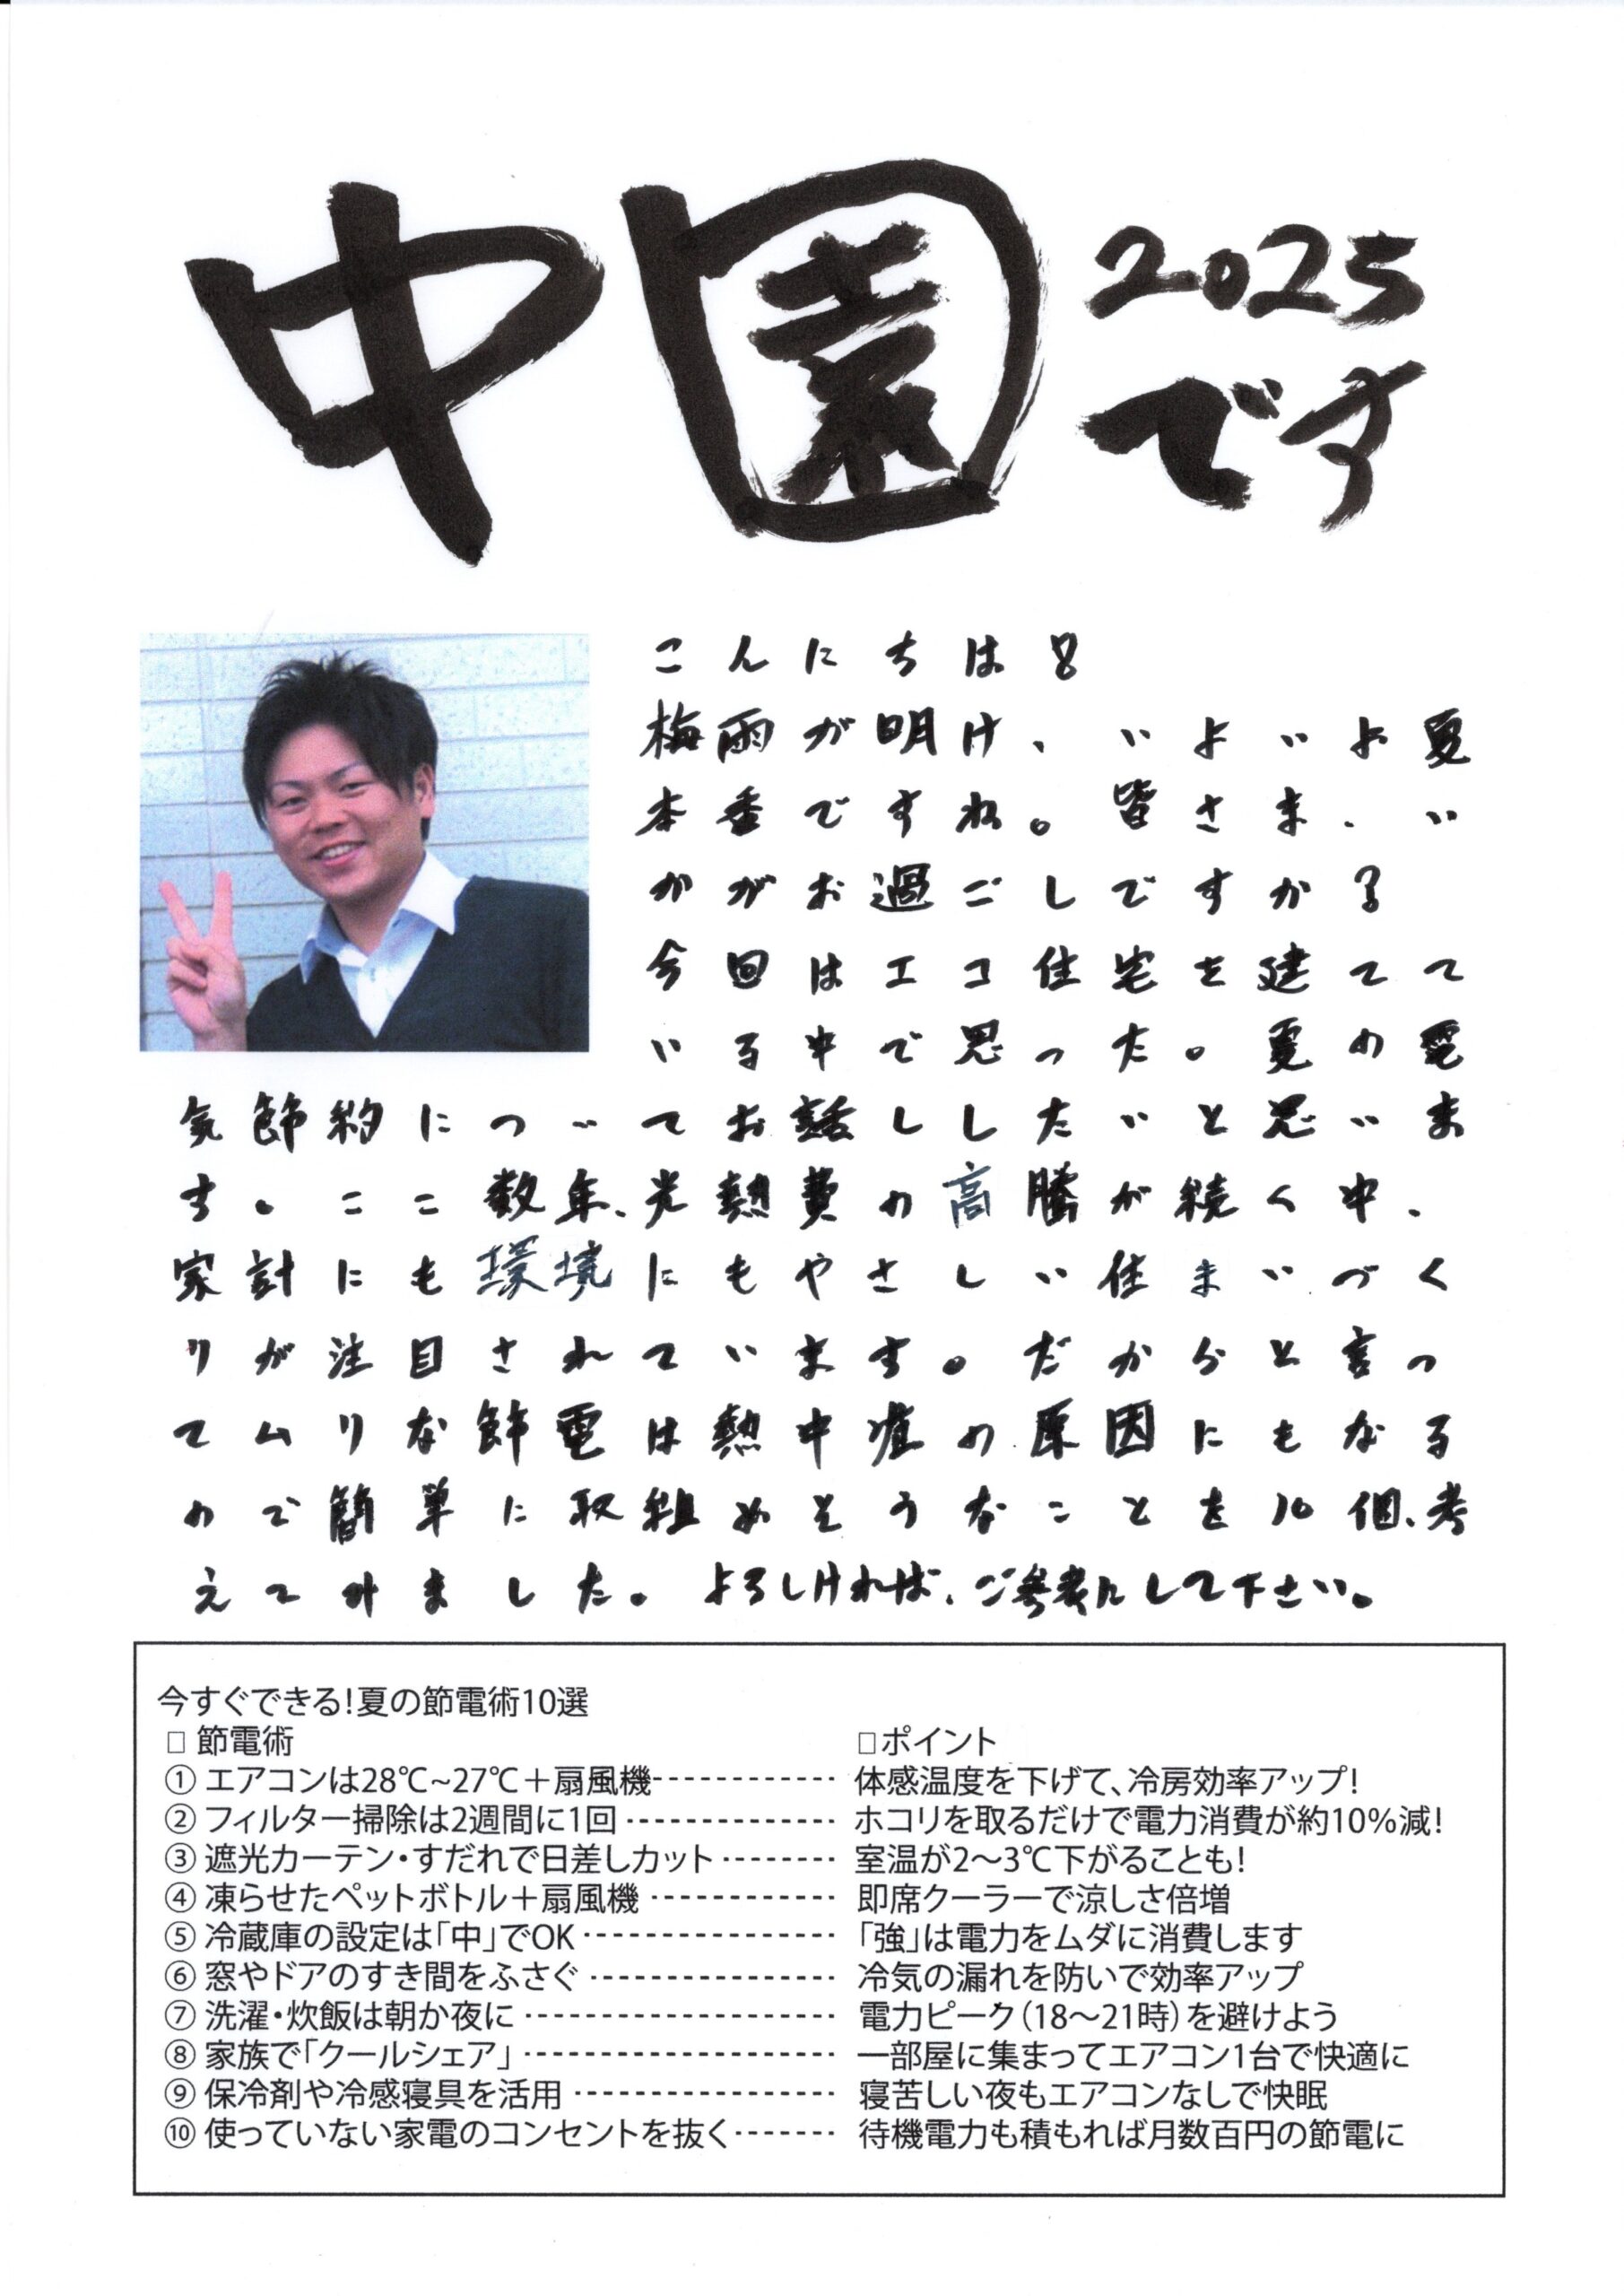 中園 2025 です
こんにちは!
梅雨が明け、いよいよ夏
本番ですね。皆さま、い
かがお過ごしですか?
今回はエコ住宅を建てて
いる中で思った。夏の電
気節約についてお話ししたいと思いま
す。ここ数年、光熱費の高騰が続く中、
家計にも環境にもやさしい住まいづく
りが注目されています。だからと言っ
てムリな節電は熱中症の原因にもなる
ので簡単に取組めそうなことを10個、考
えてみました。よろしければ、ご参考にして下さい。
今すぐできる!夏の節電術10選
□ 節電術 □ポイント
① エアコンは28℃~27℃+扇風機------------ 体感温度を下げて、冷房効率アップ!
② フィルター掃除は2週間に1回-------------- ホコリを取るだけで電力消費が約10%減!
③ 遮光カーテン・すだれで日差しカット-------- 室温が2〜3℃下がることも!
④ 凍らせたペットボトル+扇風機------------ 即席クーラーで涼しさ倍増
⑤ 冷蔵庫の設定は「中」でOK---------------- 「強」は電力をムダに消費します
⑥ 窓やドアのすき間をふさぐ---------------- 冷気の漏れを防いで効率アップ
⑦ 洗濯・炊飯は朝か夜に-------------------- 電力ピーク(18〜21時)を避けよう
⑧ 家族で「クールシェア」-------------------- 一部屋に集まってエアコン1台で快適に
⑨ 保冷剤や冷感寝具を活用----------------- 寝苦しい夜もエアコンなしで快眠
⑩ 使っていない家電のコンセントを抜く------- 待機電力も積もれば月数百円の節電に